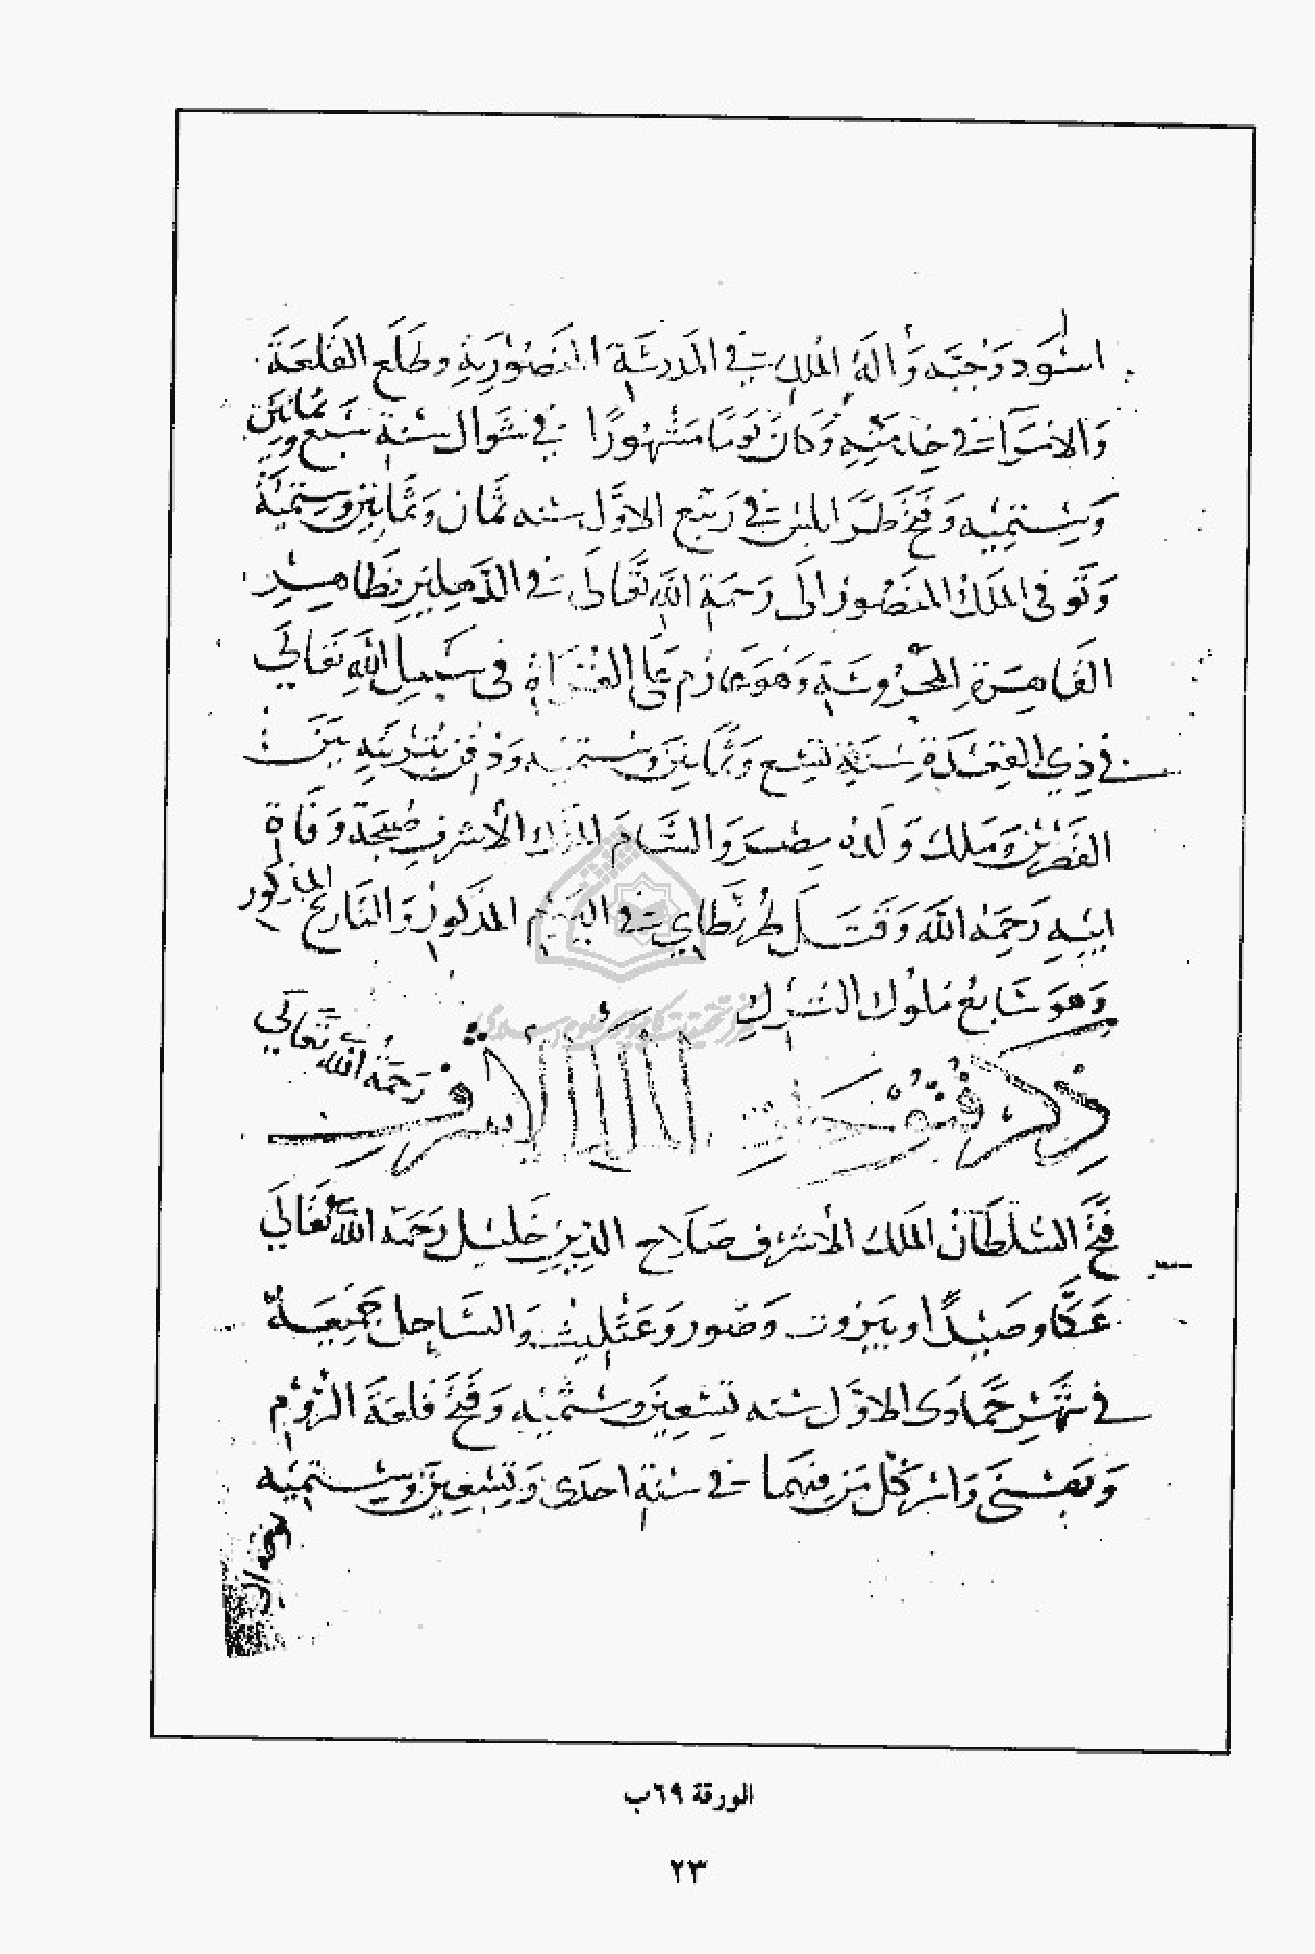 اسود وجبته وآلة الملك في المدرسة المنصورية وطلع القلعة
والامرآ في خدمته وكان يوما مشهورا في شوال سنة سبع وثمانين
وستمئه وفتح طرابلس في ربيع الاول سنه ثمان وثمانين وستمئة
وتوفي الملك المنصور الى رحمة الله تعالى في الدهليز بظاهر
القاهرة المحروسة وهو عازم على الغزاة في سبيل الله تعالى
في ذي القعدة سنة تسع وثمانين وستمئه ودفن بتربته بين
القصرين وملك ولده بمصر والشام الملك الأشرف صبيحة وفاة
ابيه رحمه الله وقتل طرنطاي في اليوم المذكور والتاريخ المذكور
وهو سابع ملوك الترك
ذكر فتوحات الملك الأشرف رحمه الله تعالى
فتح السلطان الملك الأشرف صلاح الدين خليل رحمه الله تعالى
عكا وصيدا وبيروت وصور وعثليث والساحل جميعه
في شهر جمادى الاول سنه تسعين وستمئه وفتح قلعة الروم
وبهسنى وائر كل من فيهما في سنة احدى وتسعين وستمئه
الورقة ٦٩ب
٢٣